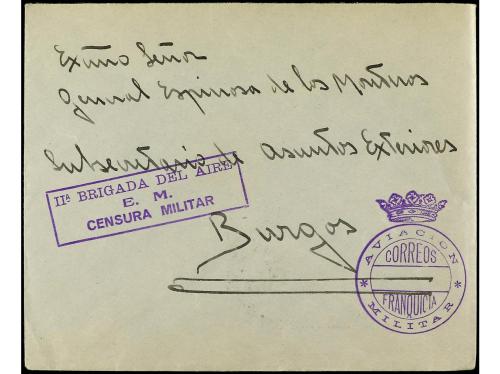 Exmo Señor
General Espinosa de los Monteros
Subsecretario de Asuntos Exteriores
IIª BRIGADA DEL AIRE
E. M.
CENSURA MILITAR
Burgos
AVIACION
CORREOS
FRANQUICIA
MILITAR